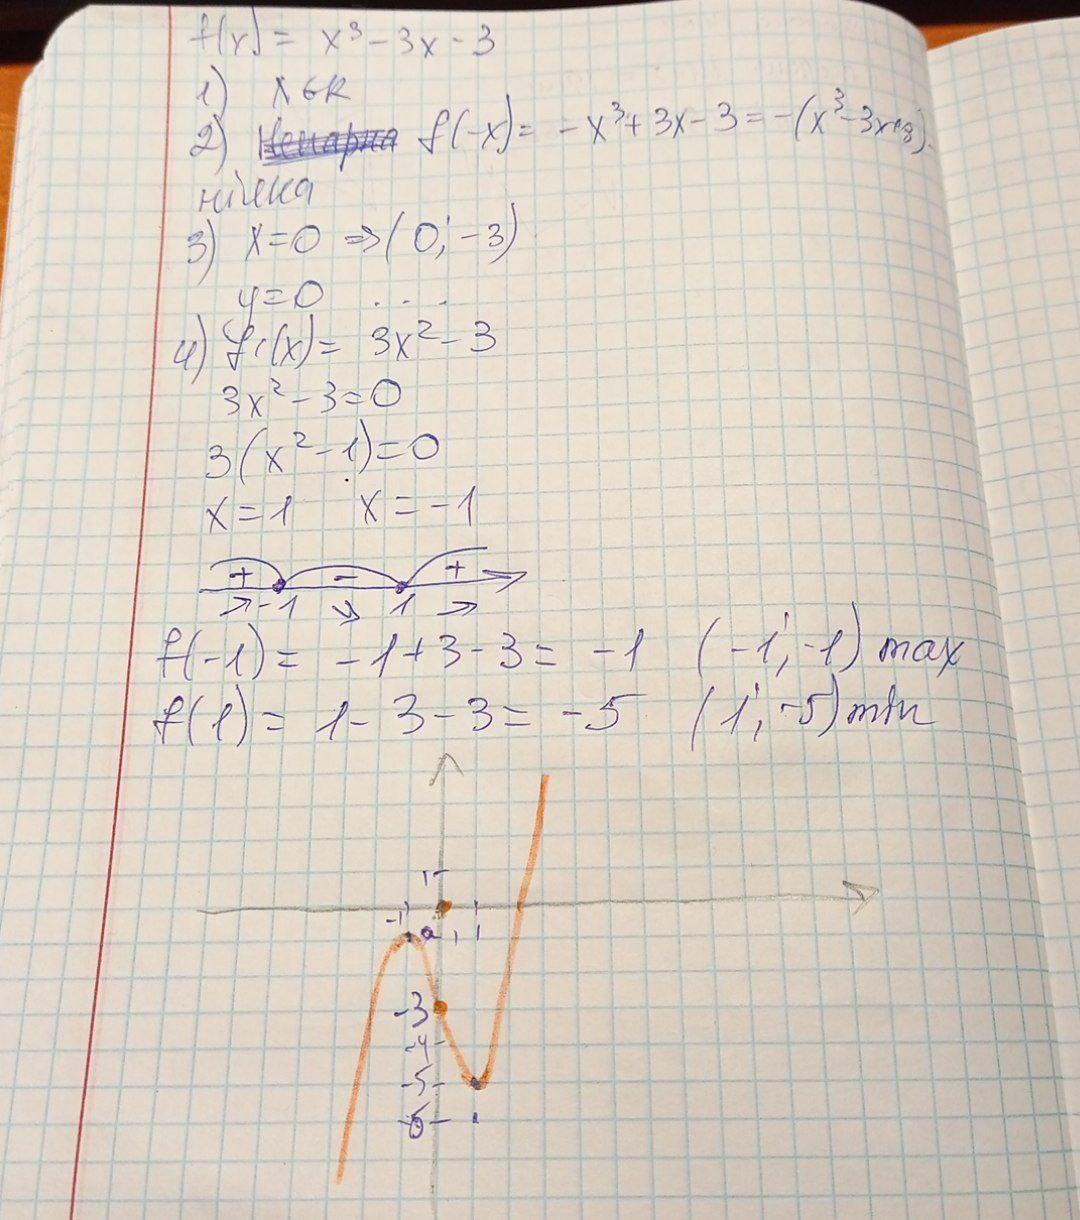 f(x) = x³ - 3x - 3
1) x ∈ R
2) f(-x) = -x³ + 3x - 3 = -(x³ - 3x + 3).
нічка
3) x = 0 ⇒ (0; -3)
y = 0 ....
4) f'(x) = 3x² - 3
3x² - 3 = 0
3(x² - 1) = 0
x = 1 x = -1
+ - +
-1 1
f(-1) = -1 + 3 - 3 = -1 (-1; -1) max
f(1) = 1 - 3 - 3 = -5 (1; -5) min
1
-1 1
-3
-4
-5
-6